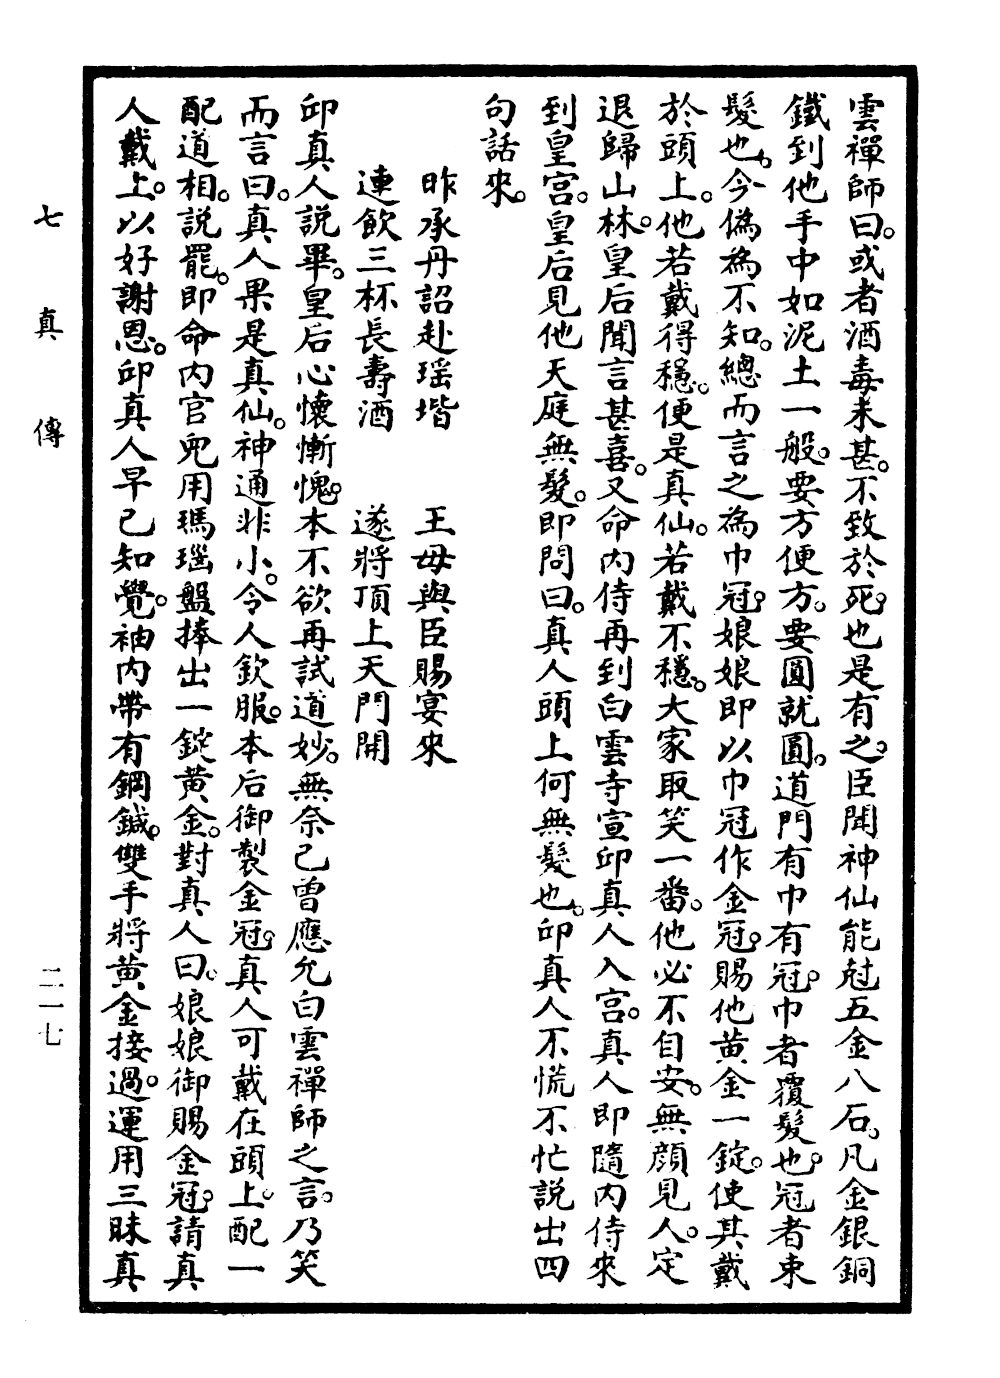 雲禪師曰。或者酒毒未甚。不致於死。也是有之。臣聞神仙能尅五金八石。凡金銀銅
鐵到他手中如泥土一般。要方便方。要圓就圓。道門有巾有冠。巾者覆髮也。冠者束
髮也。今偽為不知。總而言之為巾冠。娘娘即以巾冠作金冠。賜他黄金一錠。使其戴
於頭上。他若戴得穩。便是真仙。若戴不穩。大家取笑一番。他必不自安。無顔見人。定
退歸山林。皇后聞言甚喜。又命内侍再到白雲寺宣邱真人入宫。真人即隨内侍來
到皇宫。皇后見他天庭無髮。即問曰。真人頭上何無髮也。邱真人不慌不忙説出四
句話來。
昨承丹詔赴瑶堦　王母與臣賜宴來
連飲三杯長壽酒　遂將頂上天門開
邱真人説畢。皇后心懷慚愧。本不欲再試道妙。無奈已曾應允白雲禪師之言。乃笑
而言曰。真人果是真仙。神通非小。令人欽服。本后御製金冠。真人可戴在頭上。配一
配道相。説罷。即命内官兜用瑪瑙盤捧出一錠黄金。對真人曰。娘娘御賜金冠。請真
人戴上。以好謝恩。邱真人早已知覺。袖内帶有鋼鍼。雙手將黄金接過。運用三昧真
七真傳
二一七